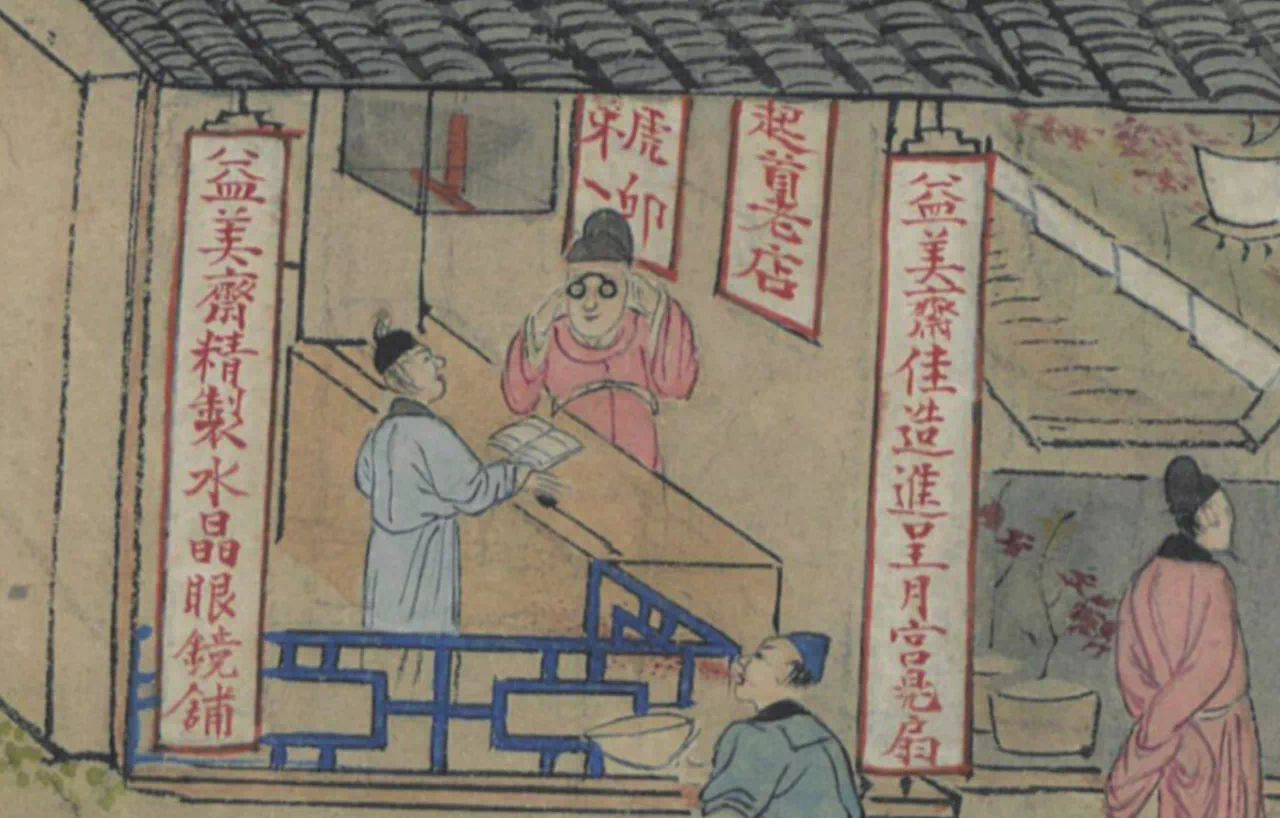 益美齋佳造進呈月宮扇
起首老店
益美齋精製水晶眼鏡舖